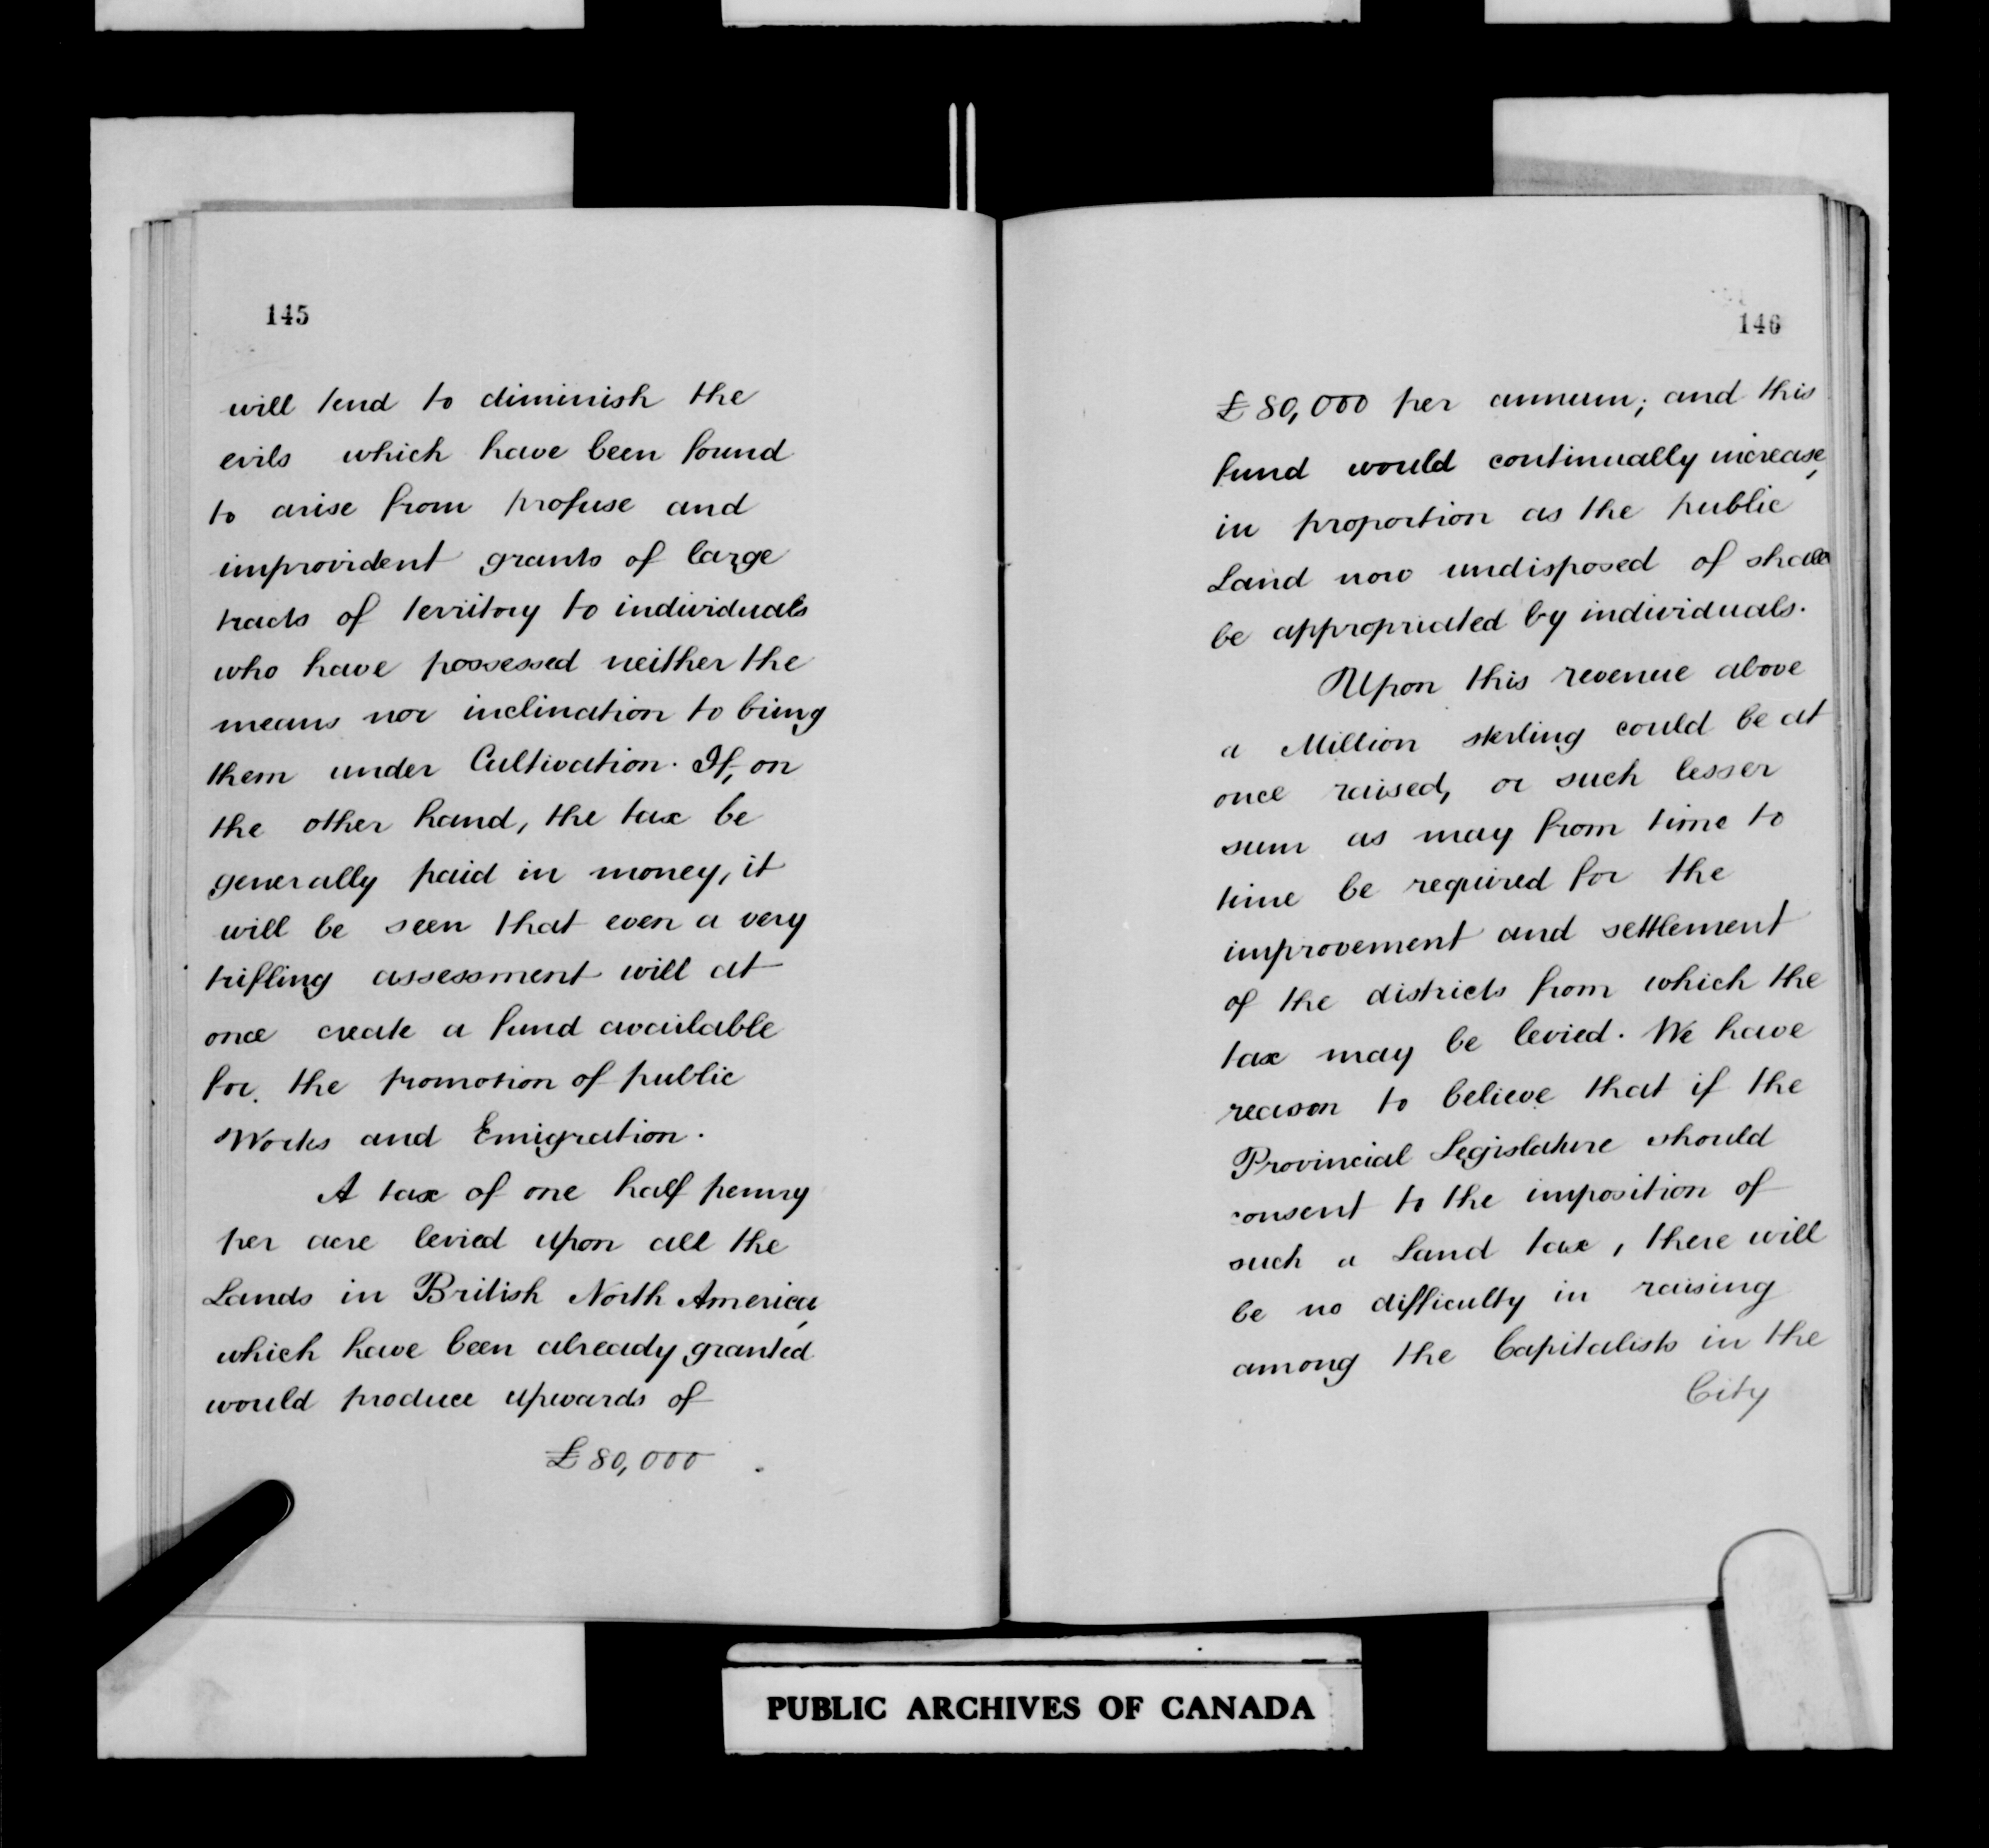 145
will tend to diminish the
evils which have been found
to arise from profuse and
improvident grants of large
tracts of territory to individuals
who have possessed neither the
means nor inclination to bring
them under Cultivation. If, on
the other hand, the tax be
generally paid in money, it
will be seen that even a very
trifling assessment will at
once create a fund available
for the promotion of public
Works and Emigration.
A tax of one half penny
per acre levied upon all the
Lands in British North America,
which have been already granted
would produce upwards of
£80,000
146
£80,000 per annum; and this
fund would continually increase,
in proportion as the public
Land now undisposed of shall
be appropriated by individuals.
Upon this revenue above
a Million sterling could be at
once raised, or such lesser
sum as may from time to
time be required for the
improvement and settlement
of the districts from which the
tax may be levied. We have
reason to believe that if the
Provincial Legislature should
consent to the imposition of
such a Land tax, there will
be no difficulty in raising
among the Capitalists in the
City
PUBLIC ARCHIVES OF CANADA